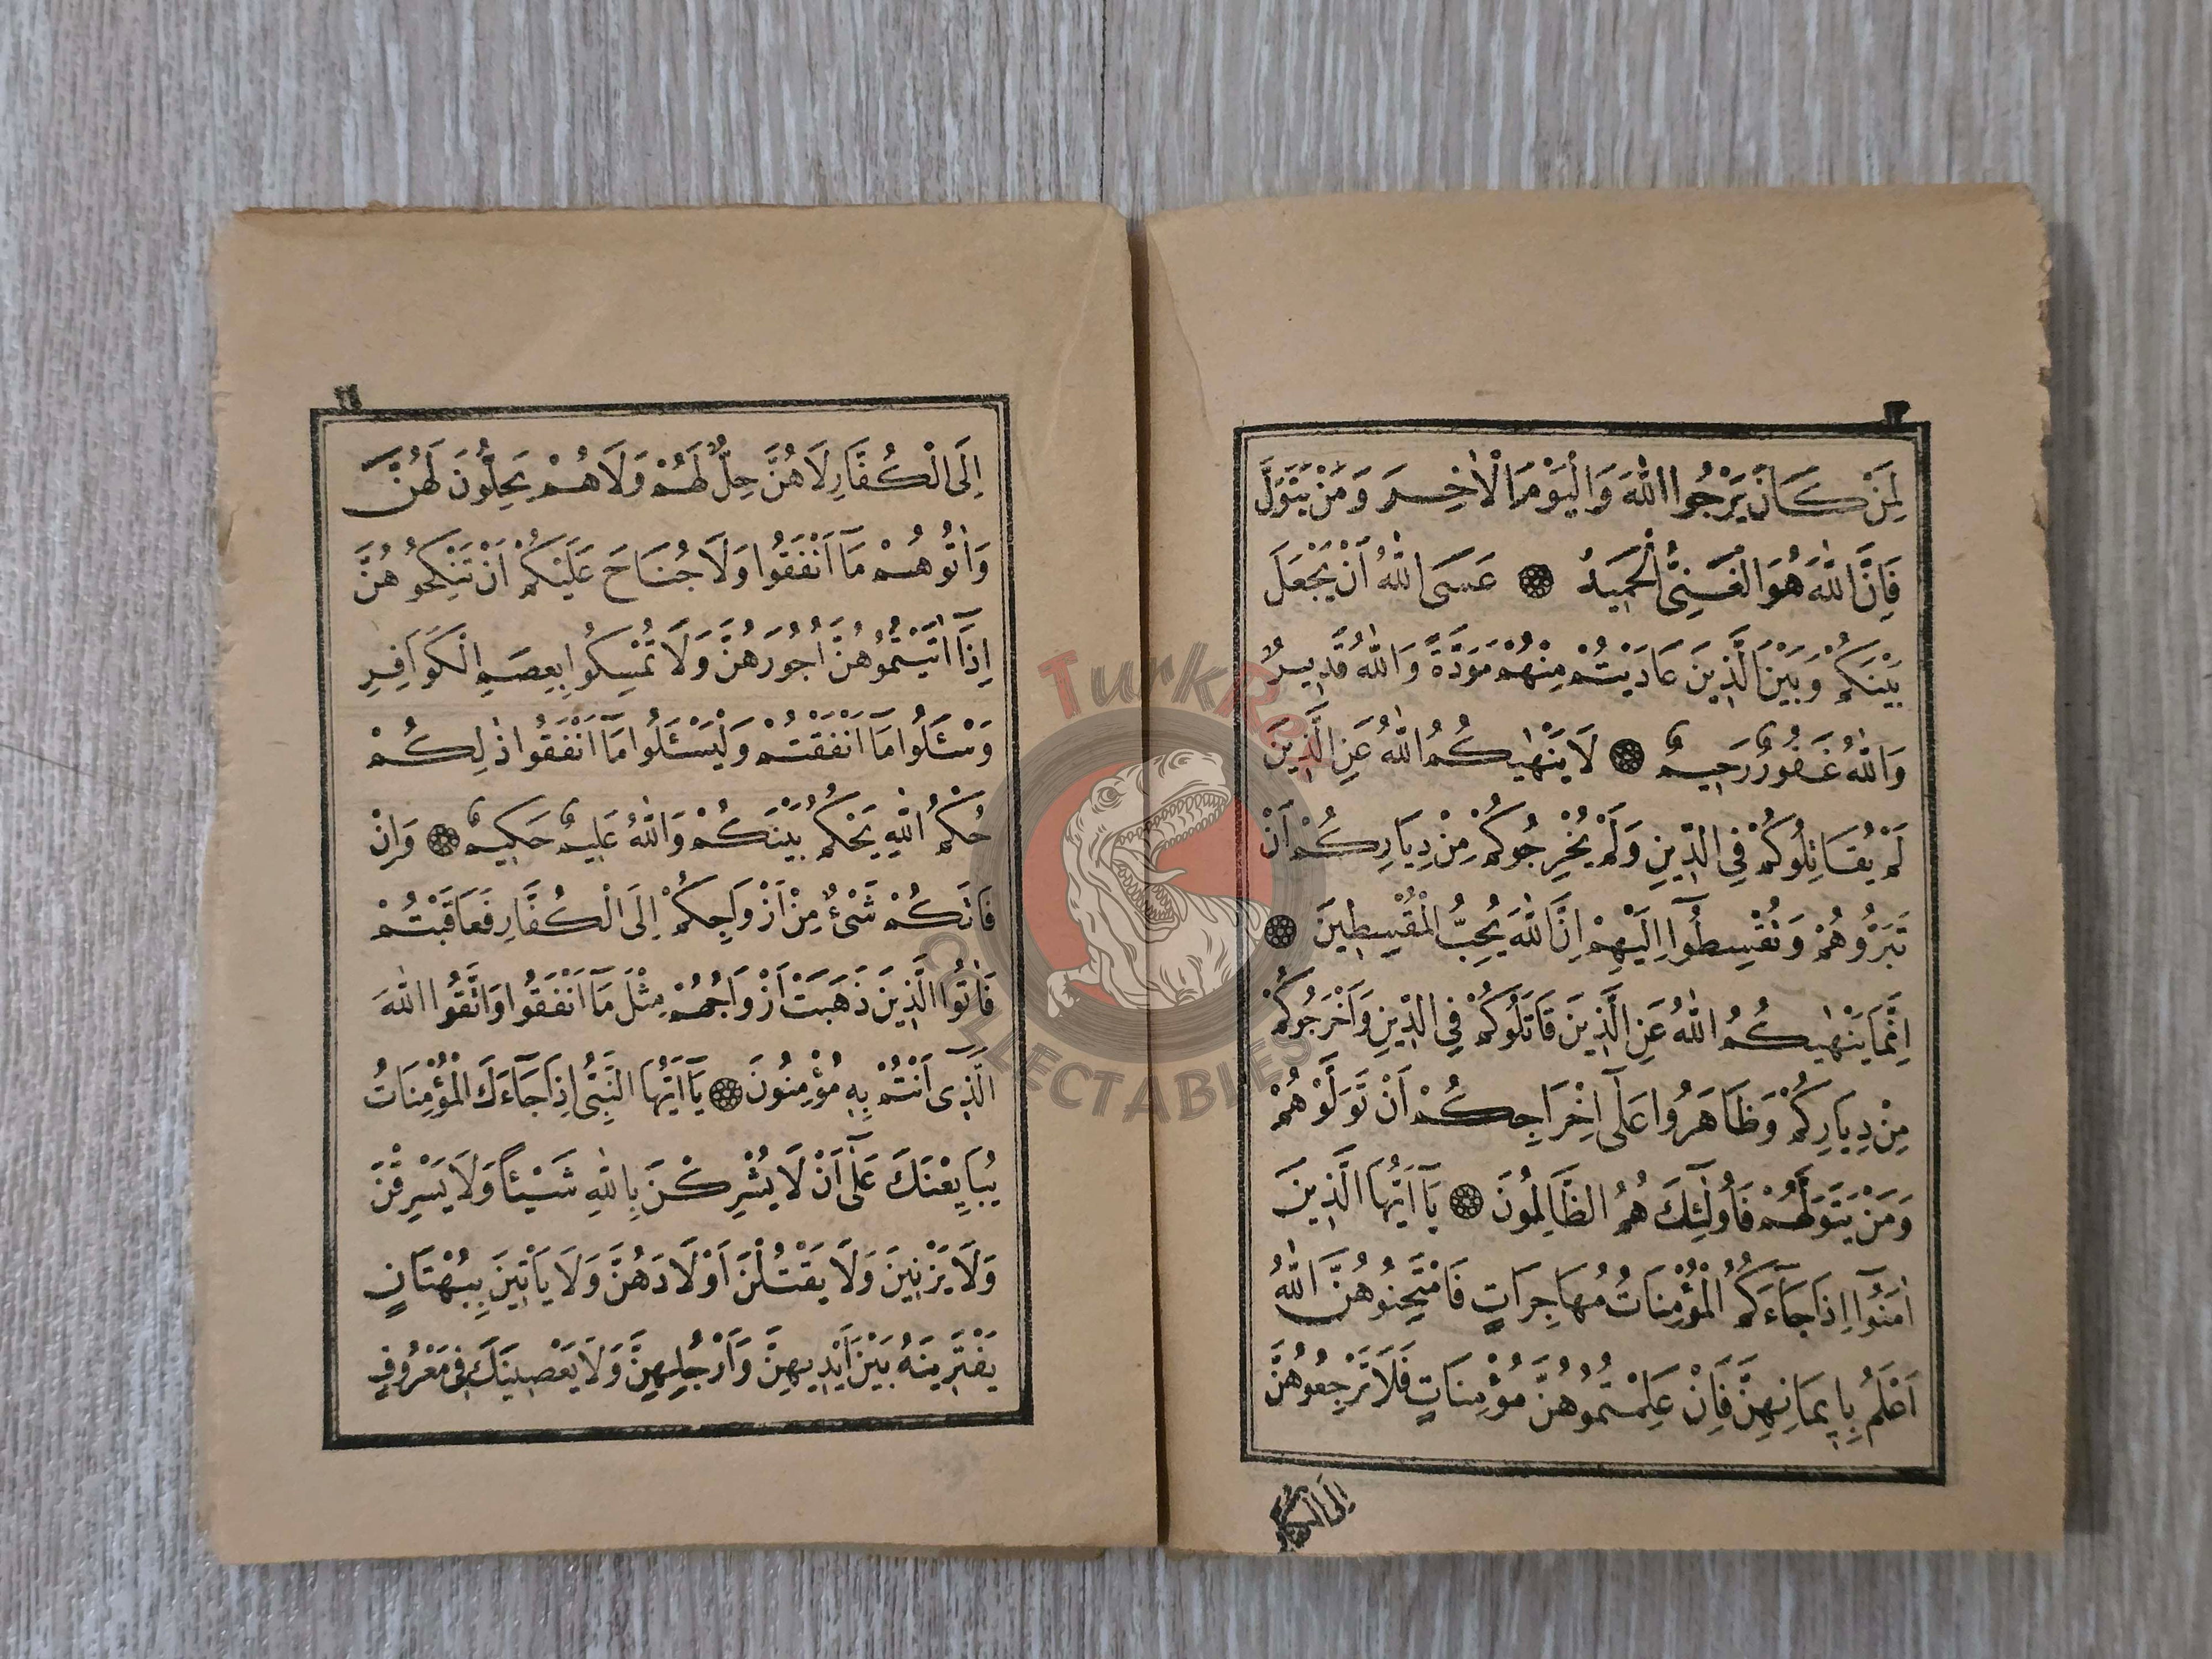 لِمَنْ كَانَ يَرْجُوا اللّٰهَ وَالْيَوْمَ الْاٰخِرَ وَمَنْ يَتَوَلَّ
فَاِنَّ اللّٰهَ هُوَ الْغَنِىُّ الْحَمِيدُ ۞ عَسَى اللّٰهُ اَنْ يَجْعَلَ
بَيْنَكُمْ وَبَيْنَ الَّذِينَ عَادَيْتُمْ مِنْهُمْ مَوَدَّةً وَاللّٰهُ قَدِيرٌ
وَاللّٰهُ غَفُورٌ رَحِيمٌ ۞ لَا يَنْهٰيكُمُ اللّٰهُ عَنِ الَّذِينَ
لَمْ يُقَاتِلُوكُمْ فِى الدِّينِ وَلَمْ يُخْرِجُوكُمْ مِنْ دِيَارِكُمْ اَنْ
تَبَرُّوهُمْ وَتُقْسِطُوٓا اِلَيْهِمْ اِنَّ اللّٰهَ يُحِبُّ الْمُقْسِطِينَ ۞
اِنَّمَا يَنْهٰيكُمُ اللّٰهُ عَنِ الَّذِينَ قَاتَلُوكُمْ فِى الدِّينِ وَاَخْرَجُوكُمْ
مِنْ دِيَارِكُمْ وَظَاهَرُوا عَلٰٓى اِخْرَاجِكُمْ اَنْ تَوَلَّوْهُمْ
وَمَنْ يَتَوَلَّهُمْ فَاُولٰٓئِكَ هُمُ الظَّالِمُونَ ۞ يَٓا اَيُّهَا الَّذِينَ
اٰمَنُوٓا اِذَا جَٓاءَكُمُ الْمُؤْمِنَاتُ مُهَاجِرَاتٍ فَامْتَحِنُوهُنَّ اَللّٰهُ
اَعْلَمُ بِاِيمَانِهِنَّ فَاِنْ عَلِمْتُمُوهُنَّ مُؤْمِنَاتٍ فَلَا تَرْجِعُوهُنَّ
اِلَى الْكُفَّارِ
اِلَى الْكُفَّارِ لَا هُنَّ حِلٌّ لَهُمْ وَلَا هُمْ يَحِلُّونَ لَهُنَّ
وَاٰتُوهُمْ مَٓا اَنْفَقُوا وَلَا جُنَاحَ عَلَيْكُمْ اَنْ تَنْكِحُوهُنَّ
اِذَٓا اٰتَيْتُمُوهُنَّ اُجُورَهُنَّ وَلَا تُمْسِكُوا بِعِصَمِ الْكَوَافِرِ
وَسْـَٔلُوا مَٓا اَنْفَقْتُمْ وَلْيَسْـَٔلُوا مَٓا اَنْفَقُوا ذٰلِكُمْ
حُكْمُ اللّٰهِ يَحْكُمُ بَيْنَكُمْ وَاللّٰهُ عَلِيمٌ حَكِيمٌ ۞ وَاِنْ
فَاتَكُمْ شَىْءٌ مِنْ اَزْوَاجِكُمْ اِلَى الْكُفَّارِ فَعَاقَبْتُمْ
فَاٰتُوا الَّذِينَ ذَهَبَتْ اَزْوَاجُهُمْ مِثْلَ مَٓا اَنْفَقُوا وَاتَّقُوا اللّٰهَ
الَّذِٓى اَنْتُمْ بِهِ مُؤْمِنُونَ ۞ يَٓا اَيُّهَا النَّبِىُّ اِذَا جَٓاءَكَ الْمُؤْمِنَاتُ
يُبَايِعْنَكَ عَلٰٓى اَنْ لَا يُشْرِكْنَ بِاللّٰهِ شَيْـًٔا وَلَا يَسْرِقْنَ
وَلَا يَزْنِينَ وَلَا يَقْتُلْنَ اَوْلَادَهُنَّ وَلَا يَاْتِينَ بِبُهْتَانٍ
يَفْتَرِينَهُ بَيْنَ اَيْدِيهِنَّ وَاَرْجُلِهِنَّ وَلَا يَعْصِينَكَ فِى مَعْرُوفٍ
TurkRex
COLLECTABLES